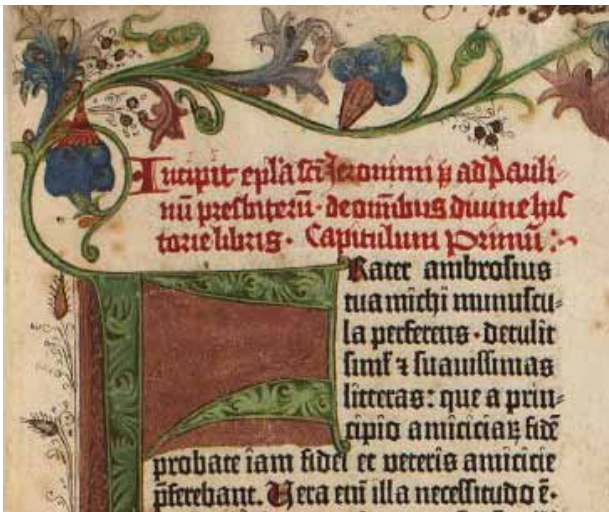 Incipit epl'a scī Jeronimi p̄ ad Pauli-
nū presbiterū · de om̄ibus diuine his
torie libris · Capitulum Primū :~
FRater ambrosius
tua michi munuscu-
la perferens · detulit
siml' ⁊ suauissimas
litteras: que a prin-
cipio amiciciaꝝ fidē
probate iam fidei et veteris amicicie
p̄ferebant. Uera eni illa necessitudo ē·